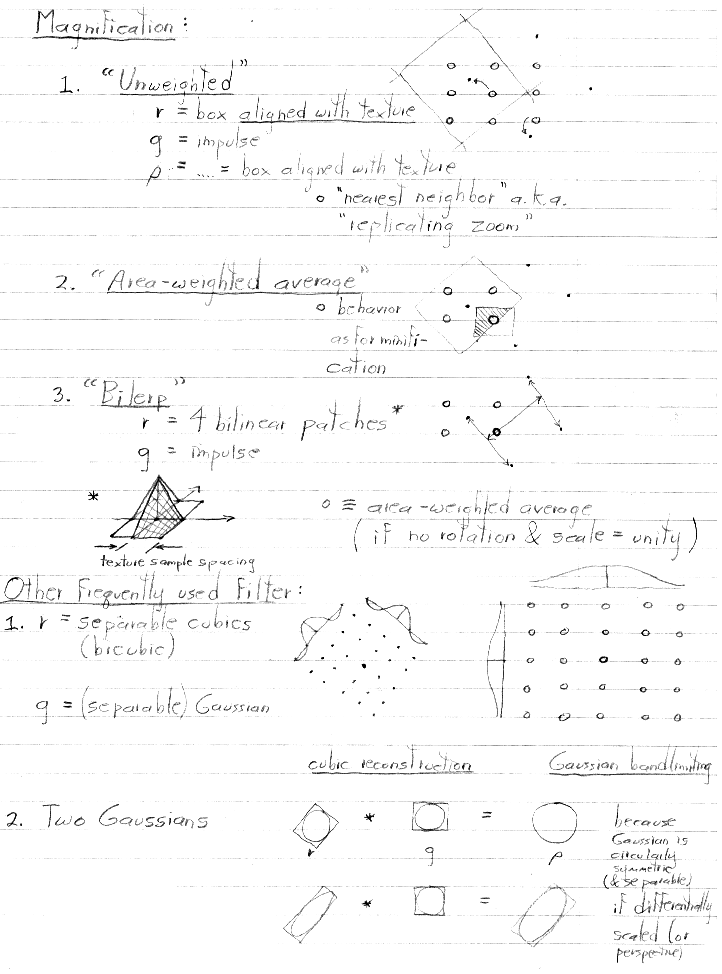 Magnification:
1. "Unweighted"
r = box aligned with texture
g = impulse
ρ = .... = box aligned with texture
o "nearest neighbor" a.k.a.
"replicating zoom"
2. "Area-weighted average"
o behavior
as for minifi-
cation
3. "Bilerp"
r = 4 bilinear patches*
g = impulse
*
texture sample spacing
o ≡ area-weighted average
(if no rotation & scale = unity)
Other Frequently used Filter:
1. r = separable cubics
(bicubic)
g = (separable) Gaussian
cubic reconstruction
Gaussian bandlimiting
2. Two Gaussians
* =
r g ρ
because
Gaussian is
circularly
symmetric
(& separable)
* =
if differentially
scaled (or
perspective)